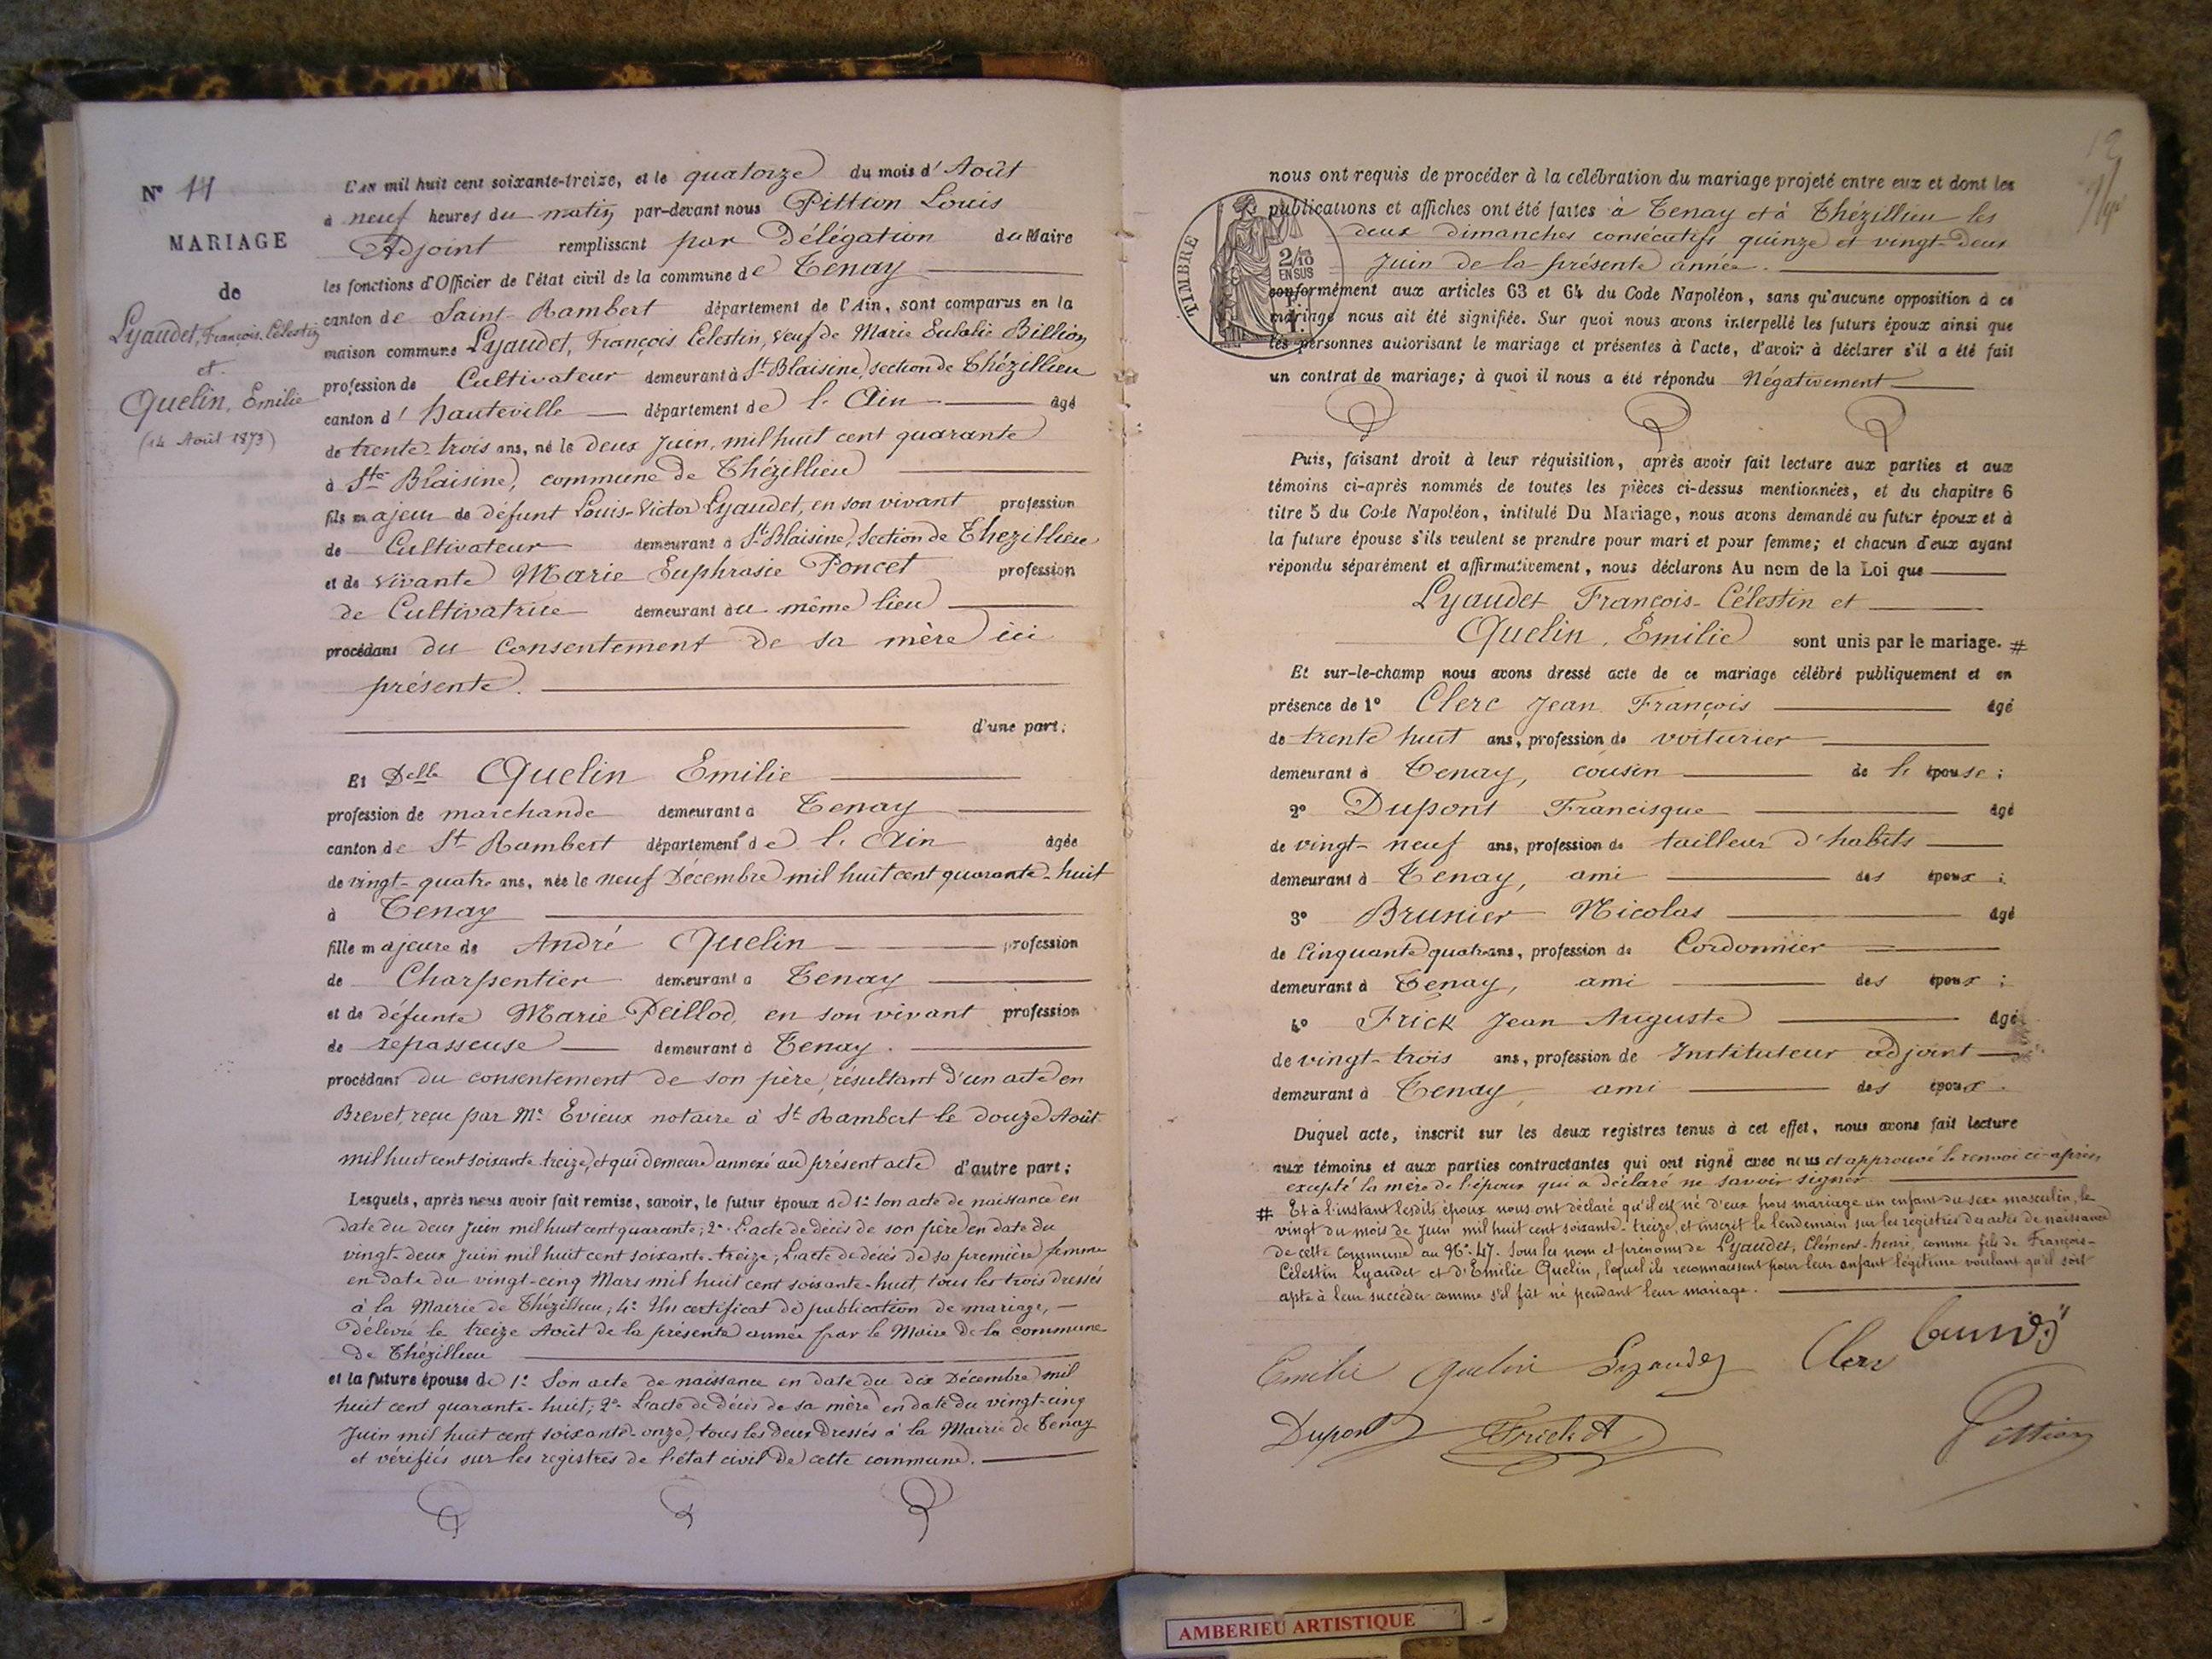 N° 11
MARIAGE
de
Lyaudet, François, Célestin
et
Quelin, Emilie
(14 Août 1873)
L'AN mil huit cent soixante-treize, et le quatorze du mois d'Août
à neuf heures du matin par-devant nous Pittion Louis
Adjoint remplissant par Délégation du Maire
les fonctions d'Officier de l'état civil de la commune de Tenay
canton de Saint-Rambert département de l'Ain, sont comparus en la
maison commune Lyaudet, François Célestin, veuf de Marie Eulalie Billion
profession de Cultivateur demeurant à Ste Blaisine, section de Thézillieu
canton d'hauteville département de l'Ain âgé
de trente-trois ans, né le deux Juin, mil huit cent quarante
à Ste Blaisine, commune de Thézillieu
fils majeur de défunt Louis-Victor Lyaudet, en son vivant profession
de Cultivateur demeurant à Ste Blaisine, Section de Thézillieu
et de vivante Marie Euphrasie Poncet profession
de Cultivatrice demeurant au même lieu
procédant du consentement de sa mère ici
présente.
d'une part;
Et Delle Quelin Emilie
profession de marchande demeurant à Tenay
canton de St Rambert département de l'Ain âgée
de vingt-quatre ans, née le neuf Décembre mil huit cent quarante-huit
à Tenay
fille majeure de André Quelin profession
de Charpentier demeurant à Tenay
et de défunte Marie Peillod, en son vivant profession
de repasseuse demeurant à Tenay.
procédant du consentement de son père, résultant d'un acte en
Brevet, reçu par Me Evieux notaire à St Rambert le douze Août
mil huit cent soixante-treize, et qui demeure annexé au présent acte d'autre part;
Lesquels, après nous avoir fait remise, savoir, le futur époux de 1° Son acte de naissance en
date du deux Juin mil huit cent quarante; 2° L'acte de décès de son père en date du
vingt-deux Juin mil huit cent soixante-treize; L'acte de décès de sa première femme
en date du vingt-cinq Mars mil huit cent soixante-huit, tous les trois dressés
à la Mairie de Thézillieu; 4° Un certificat de publication de mariage,
Délivré le treize Août de la présente année par le Maire de la commune
de Thézillieu
et la future épouse de 1° Son acte de naissance en date du dix Décembre mil
huit cent quarante-huit; 2° L'acte de décès de sa mère en date du vingt-cinq
Juin mil huit cent soixante-onze, tous les deux dressés à la Mairie de Tenay
et vérifiés sur les registres de l'état civil de cette commune.
TIMBRE
2/10
EN SUS
nous ont requis de procéder à la célébration du mariage projeté entre eux et dont les
publications et affiches ont été faites à Tenay et à Thézillieu les
deux dimanches consécutifs quinze et vingt-deux
Juin de la présente année.
conformément aux articles 63 et 64 du Code Napoléon, sans qu'aucune opposition à ce
mariage nous ait été signifiée. Sur quoi nous avons interpellé les futurs époux ainsi que
les personnes autorisant le mariage et présentes à l'acte, d'avoir à déclarer s'il a été fait
un contrat de mariage; à quoi il nous a été répondu Négativement
Puis, faisant droit à leur réquisition, après avoir fait lecture aux parties et aux
témoins ci-après nommés de toutes les pièces ci-dessus mentionnées, et du chapitre 6
titre 5 du Code Napoléon, intitulé Du Mariage, nous avons demandé au futur époux et à
la future épouse s'ils veulent se prendre pour mari et pour femme; et chacun d'eux ayant
répondu séparément et affirmativement, nous déclarons Au nom de la Loi que
Lyaudet François-Célestin et
Quelin, Emilie sont unis par le mariage. #
Et sur-le-champ nous avons dressé acte de ce mariage célébré publiquement et en
présence de 1° Clerc Jean François âgé
de trente huit ans, profession de voiturier
demeurant à Tenay, cousin de l'épouse;
2° Dupont Francisque âgé
de vingt-neuf ans, profession de tailleur d'habits
demeurant à Tenay, ami des époux;
3° Brunier Nicolas âgé
de Cinquante quatre ans, profession de Cordonnier
demeurant à Tenay, ami des époux;
4° Frick Jean Auguste âgé
de vingt-trois ans, profession de Instituteur adjoint
demeurant à Tenay, ami des époux.
Duquel acte, inscrit sur les deux registres tenus à cet effet, nous avons fait lecture
aux témoins et aux parties contractantes qui ont signé avec nous et approuvé le renvoi ci-après,
excepté la mère de l'époux qui a déclaré ne savoir signer.
# Et à l'instant lesdits époux nous ont déclaré qu'il est né d'eux hors mariage un enfant du sexe masculin, le
vingt du mois de Juin mil huit cent soixante-treize, et inscrit le lendemain sur les registres des actes de naissance
de cette commune au N° 47. Sous les nom et prénoms de Lyaudet, Clément-henri, comme fils de François-
Célestin Lyaudet et d'Emilie Quelin, lequel ils reconnaissent pour leur enfant légitime voulant qu'il soit
apte à leur succéder comme s'il fût né pendant leur mariage.
Emilie Quelin Lyaudet Clerc
Dupont Frick A Pittion
AMBERIEU ARTISTIQUE